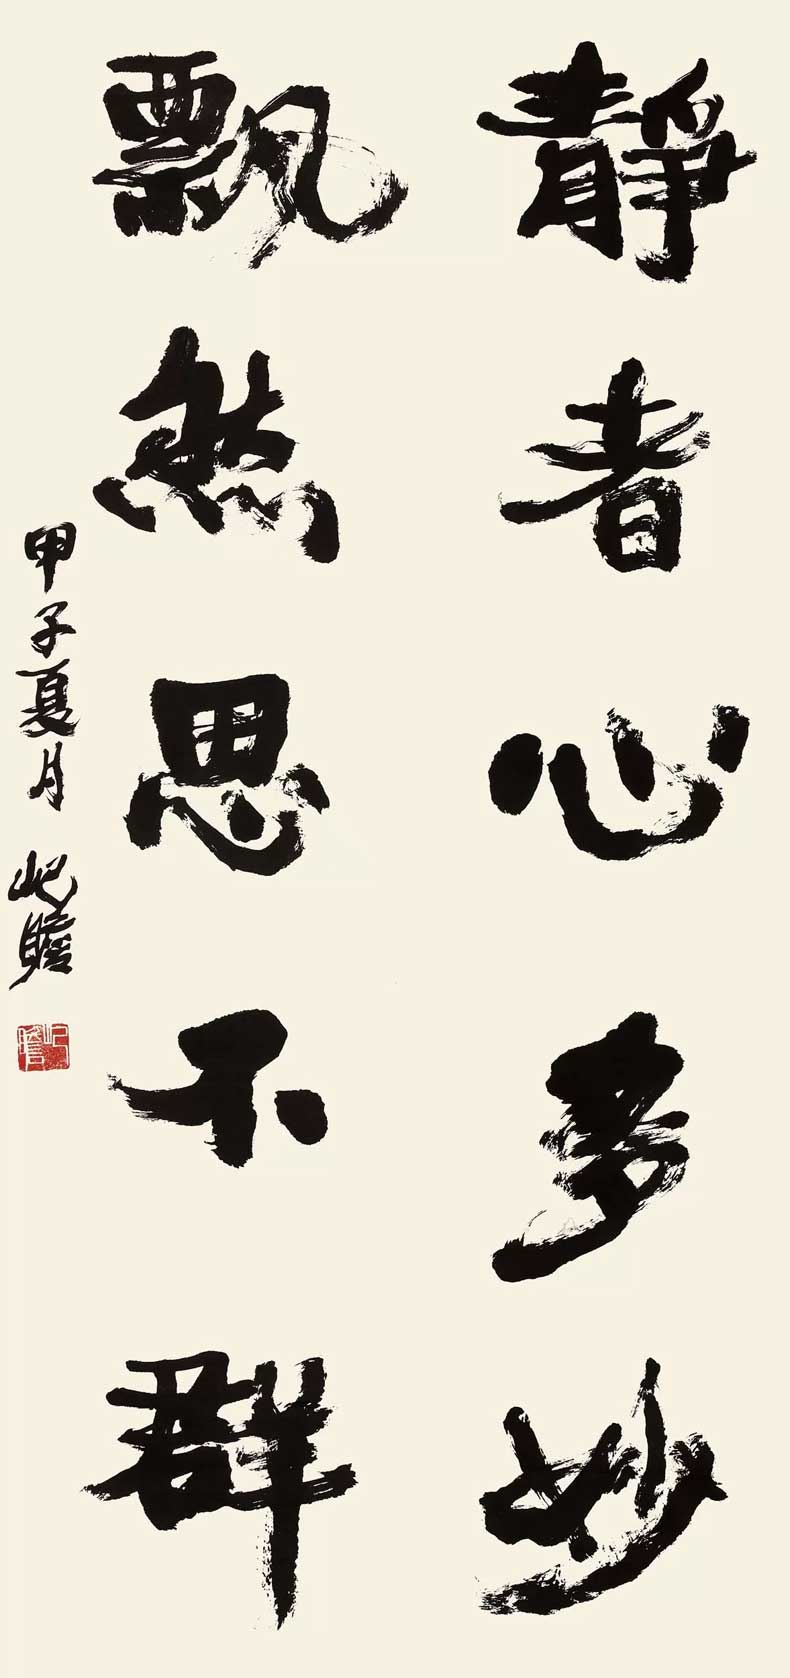 靜者心多妙
飄然思不群
甲子夏月 屺瞻
屺瞻